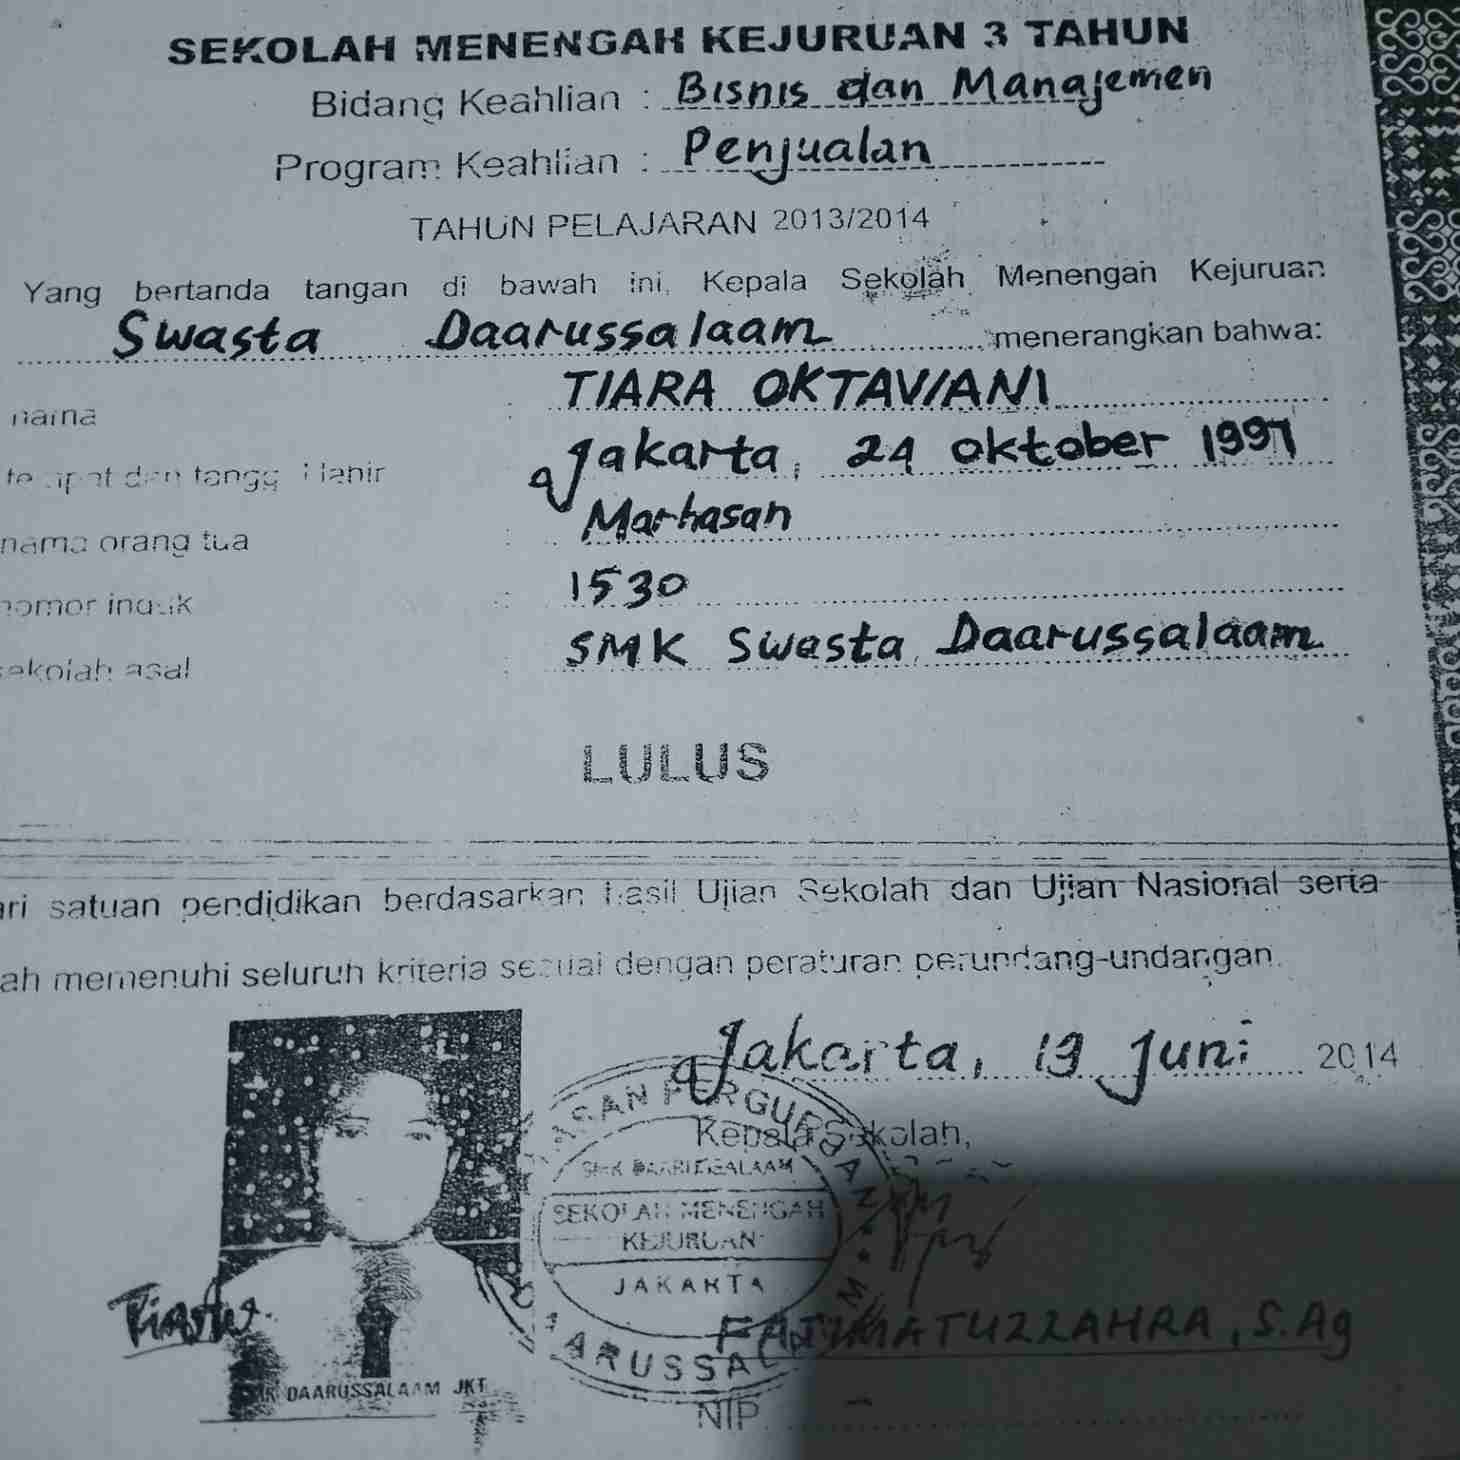 SEKOLAH MENENGAH KEJURUAN 3 TAHUN
Bidang Keahlian : Bisnis dan Manajemen
Program Keahlian : Penjualan
TAHUN PELAJARAN 2013/2014
Yang bertanda tangan di bawah ini, Kepala Sekolah Menengah Kejuruan
Swasta Daarussalaam menerangkan bahwa:
nama : TIARA OKTAVIANI
tempat dan tanggal lahir : Jakarta, 24 Oktober 1997
nama orang tua : Marhasan
nomor induk : 1530
sekolah asal : SMK Swasta Daarussalaam
LULUS
ari satuan pendidikan berdasarkan hasil Ujian Sekolah dan Ujian Nasional serta
ah memenuhi seluruh kriteria sesuai dengan peraturan perundang-undangan.
Jakarta, 19 Juni 2014
Kepala Sekolah,
SMK DAARUSSALAAM
SEKOLAH MENENGAH
KEJURUAN
JAKARTA
FATIMATUZZAHRA, S.Ag
DAARUSSALAAM JKT
NIP. -